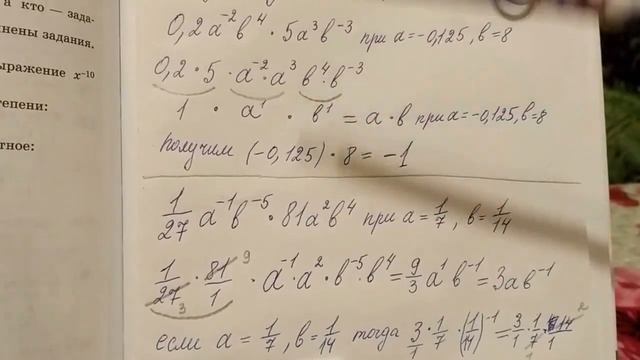 а кто — зада-
нены задания.
выражение x⁻¹⁰
тепени:
тное:
0,2a⁻²b⁴ · 5a³b⁻³ при a=−0,125, b=8
0,2 · 5 · a⁻² · a³ b⁴ · b⁻³
1 · a¹ · b¹ = a · b при a=−0,125, b=8
получим (−0,125) · 8 = −1
1/27 a⁻¹b⁻⁵ · 81a²b⁴ при a = 1/7, b = 1/14
1/27 3 · 81/1 9 · a⁻¹ · a² · b⁻⁵ · b⁴ = 9/3 a¹ b⁻¹ = 3ab⁻¹
если a = 1/7, b = 1/14 тогда 3/1 · 1/7 · (1/14)⁻¹ = 3/1 · 1/7 · 14/1 2